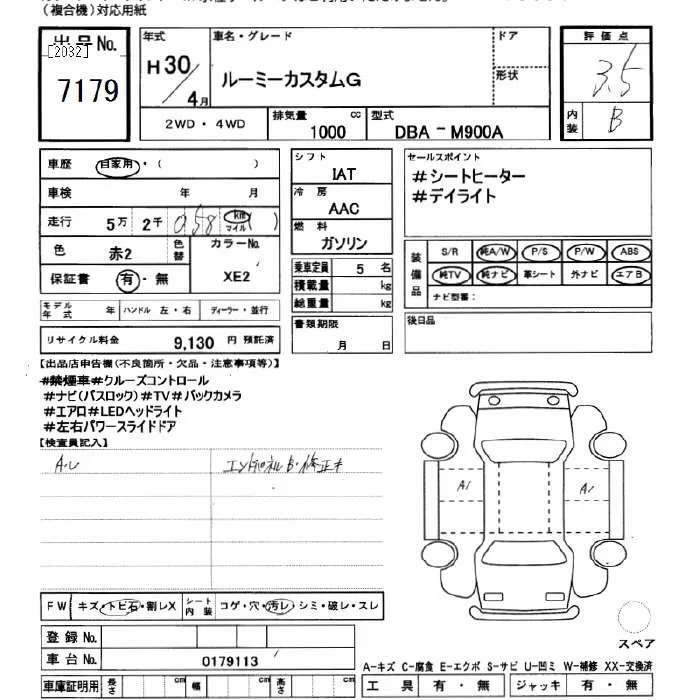 （複合機）対応用紙
出品No.
[2032]
7179
年式
H30
4月
車名・グレード
ルーミーカスタムG
ドア
形状
2WD・4WD
排気量 cc
1000
型式
DBA－M900A
評価点
3.5
内装
B
車歴 自家用・（ ）
車検 年 月
走行 5万 2千 058 km マイル ( )
色 赤2 色替
カラーNo.
XE2
保証書 有・無
シフト
IAT
冷房
AAC
燃料
ガソリン
乗車定員 5名
積載量 kg
総重量 kg
セールスポイント
＃シートヒーター
＃デイライト
装備品
S/R 純A/W P/S P/W ABS
純TV 純ナビ 革シート 外ナビ エアB
ナビ型番：
モデル年式 年 ハンドル 左・右 ディーラー・並行
リサイクル料金 9,130 円 預託済
書類期限
月 日
後日品
【出品店申告欄（不良箇所・欠品・注意事項等）】
#禁煙車#クルーズコントロール
#ナビ(パスロック)#TV#バックカメラ
#エアロ#LEDヘッドライト
#左右パワースライドドア
【検査員記入】
A.U
B・修正キ
A1
A1
FW キズ・トビ石・割レX
シート内装 コゲ・穴・汚レ・シミ・破レ・スレ
登録No.
車台No. 0179113
車庫証明用 長さ cm 幅 cm 高さ cm
スペア
A-キズ C-腐食 E-エクボ S-サビ U-凹ミ W-補修 XX-交換済
工具 有・無 ジャッキ 有・無